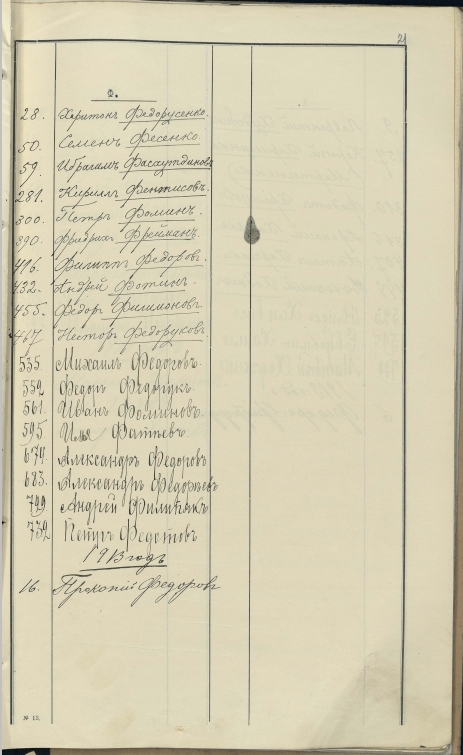 21
Ф.
28. Харитонъ Федорусенко.
50. Семенъ Фесенко
59. Ибрагимъ Фасахутдиновъ
281. Кириллъ Фентисовъ.
300. Петръ Фоминъ.
390. Фридрихъ Фрейманъ.
416. Филиппъ Федоровъ.
432. Андрей Фотинъ.
455. Федоръ Филимоновъ
467 Несторъ Федоруковъ
535. Михаилъ Федоровъ.
552 Федоръ Федорукъ
561. Иванъ Фоминовъ.
595. Илья Фатѣевъ
674. Александръ Федоровъ
683. Александръ Федоровъ
729. Андрей Филипякъ
732 Петръ Федотовъ
1913 годъ
16. Прокопій Федоровъ
№ 13.